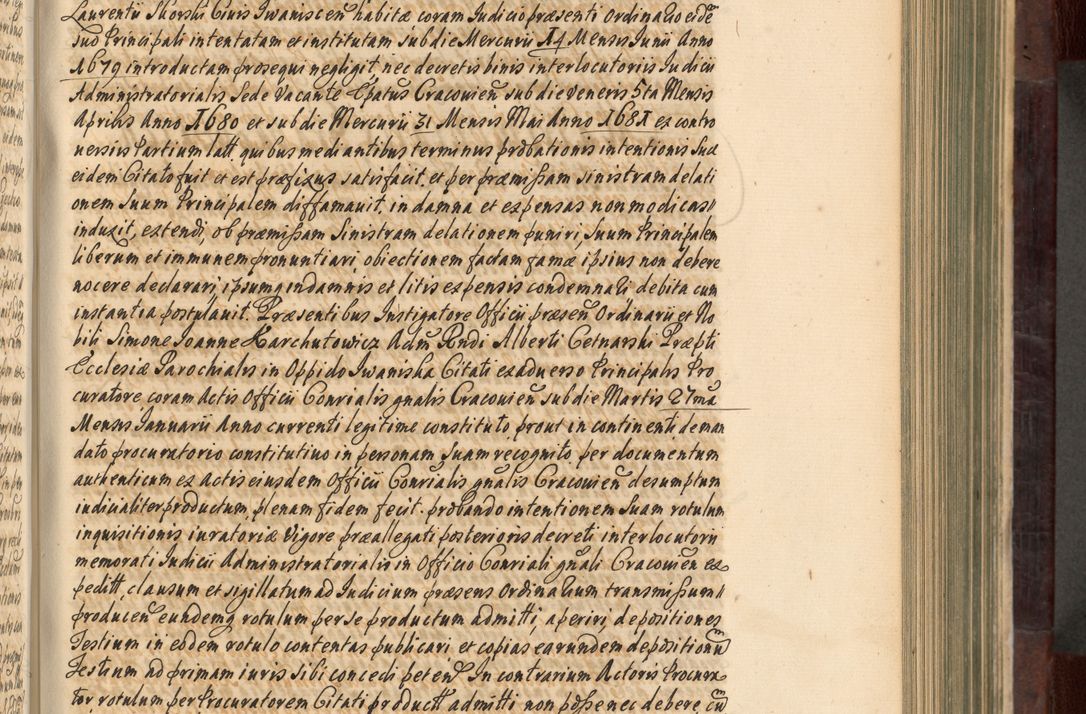 Laurentii Skorski Civis Iwaniscen̄ habitæ coram Iudicio præsenti Ordinario eidē
suo Principali intentatam et institutam sub die Mercurii 14 Mensis Iunii Anno
1679 introductam prosequi negligit, nec decretis binis interlocutoriis Iudicii
Administratorialis Sede Vacante Epatus Cracouien̄ sub die Veneris 5ta Mensis
Aprilis Anno 1680 et sub die Mercurii 31 Mensis Mai Anno 1681 ex contro
uersiis Partium latt. quibus mediantibus terminus probationis intentionis suæ
eidem Citato fuit et est præfixus satisfacit, et per præmissam sinistram delati
onem Suum Principalem diffamauit, in damna et expensas non modicas
induxit, extendi, ob præmissam Sinistram delationem puniri, Suum Principalem
liberum et immunem pronuntiari, obiectionem factam famæ ipsius non debere
nocere declarari, ipsumq in damnis et litis expensis condemnari debita cum
instantia postulauit. Præsentibus Instigatore Officii præsen̄ Ordinarii et No
bili Simone Joanne Karchutowicz Adm Rndi Alberti Cetnarski Præpti
Ecclesiæ Parochialis in Oppido Iwaniska Citati ex aduerso Principalis Pro
curatore coram Actis Officii Consrialis gnalis Cracouien̄ sub die Martis 27mā
Mensis Ianuarii Anno currenti legitime constituto, prout in continenti de man
dato procuratorio constitutiuo in personam suam recognito, per documentum
authenticum ex Actis eiusdem Officii Consrialis gnalis Cracouien̄ desumptum
iudicialiter productum, plenam fidem fecit. probando intentionem Suam rotulum
inquisitionis iuratoriæ vigore præallegati posterioris decreti interlocutorii
memorati Iudicii Administratorialis in Officio Consriali gnali Cracouien̄ ex
peditt, clausum et sigillatum ad Iudicium præsens Ordinarium transmissum
producen̄ eundemq rotulum per se productum admitti, aperiri, depositiones
Testium in eodem rotulo contentas publicari et copias earundem depositionū
Testium ad primam iuris sibi concedi peten̄. In contrarium Actoris Procura
tor rotulum per Procuratorem Citati productt admitti non posse nec debere, cū